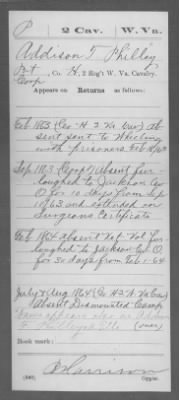 P 2 Cav. W. Va.
Addison T Philley
Pvt, Co. H, 2 Reg't W. Va. Cavalry.
Corp
Appears on Returns as follows:
Feb 1863 (Co H 2 Va Cav) Ab
sent sent to Wheeling
with prisoners Feb
Sep 1863 (Corp) Absent fur
loughed to Jackson Co
O for 20 days from Sep
10/63 and extended on
Surgeons Certificate
Feb 1864 Absent Vet Vol fur
loughed to Jackson Co O
for 30 days from Feb 1-64
July & Aug 1864 (Co H 2 Va Cav)
Absent Dismounted Camp
Name appears also as
(over)
Book mark:
Harrison
Copyist.